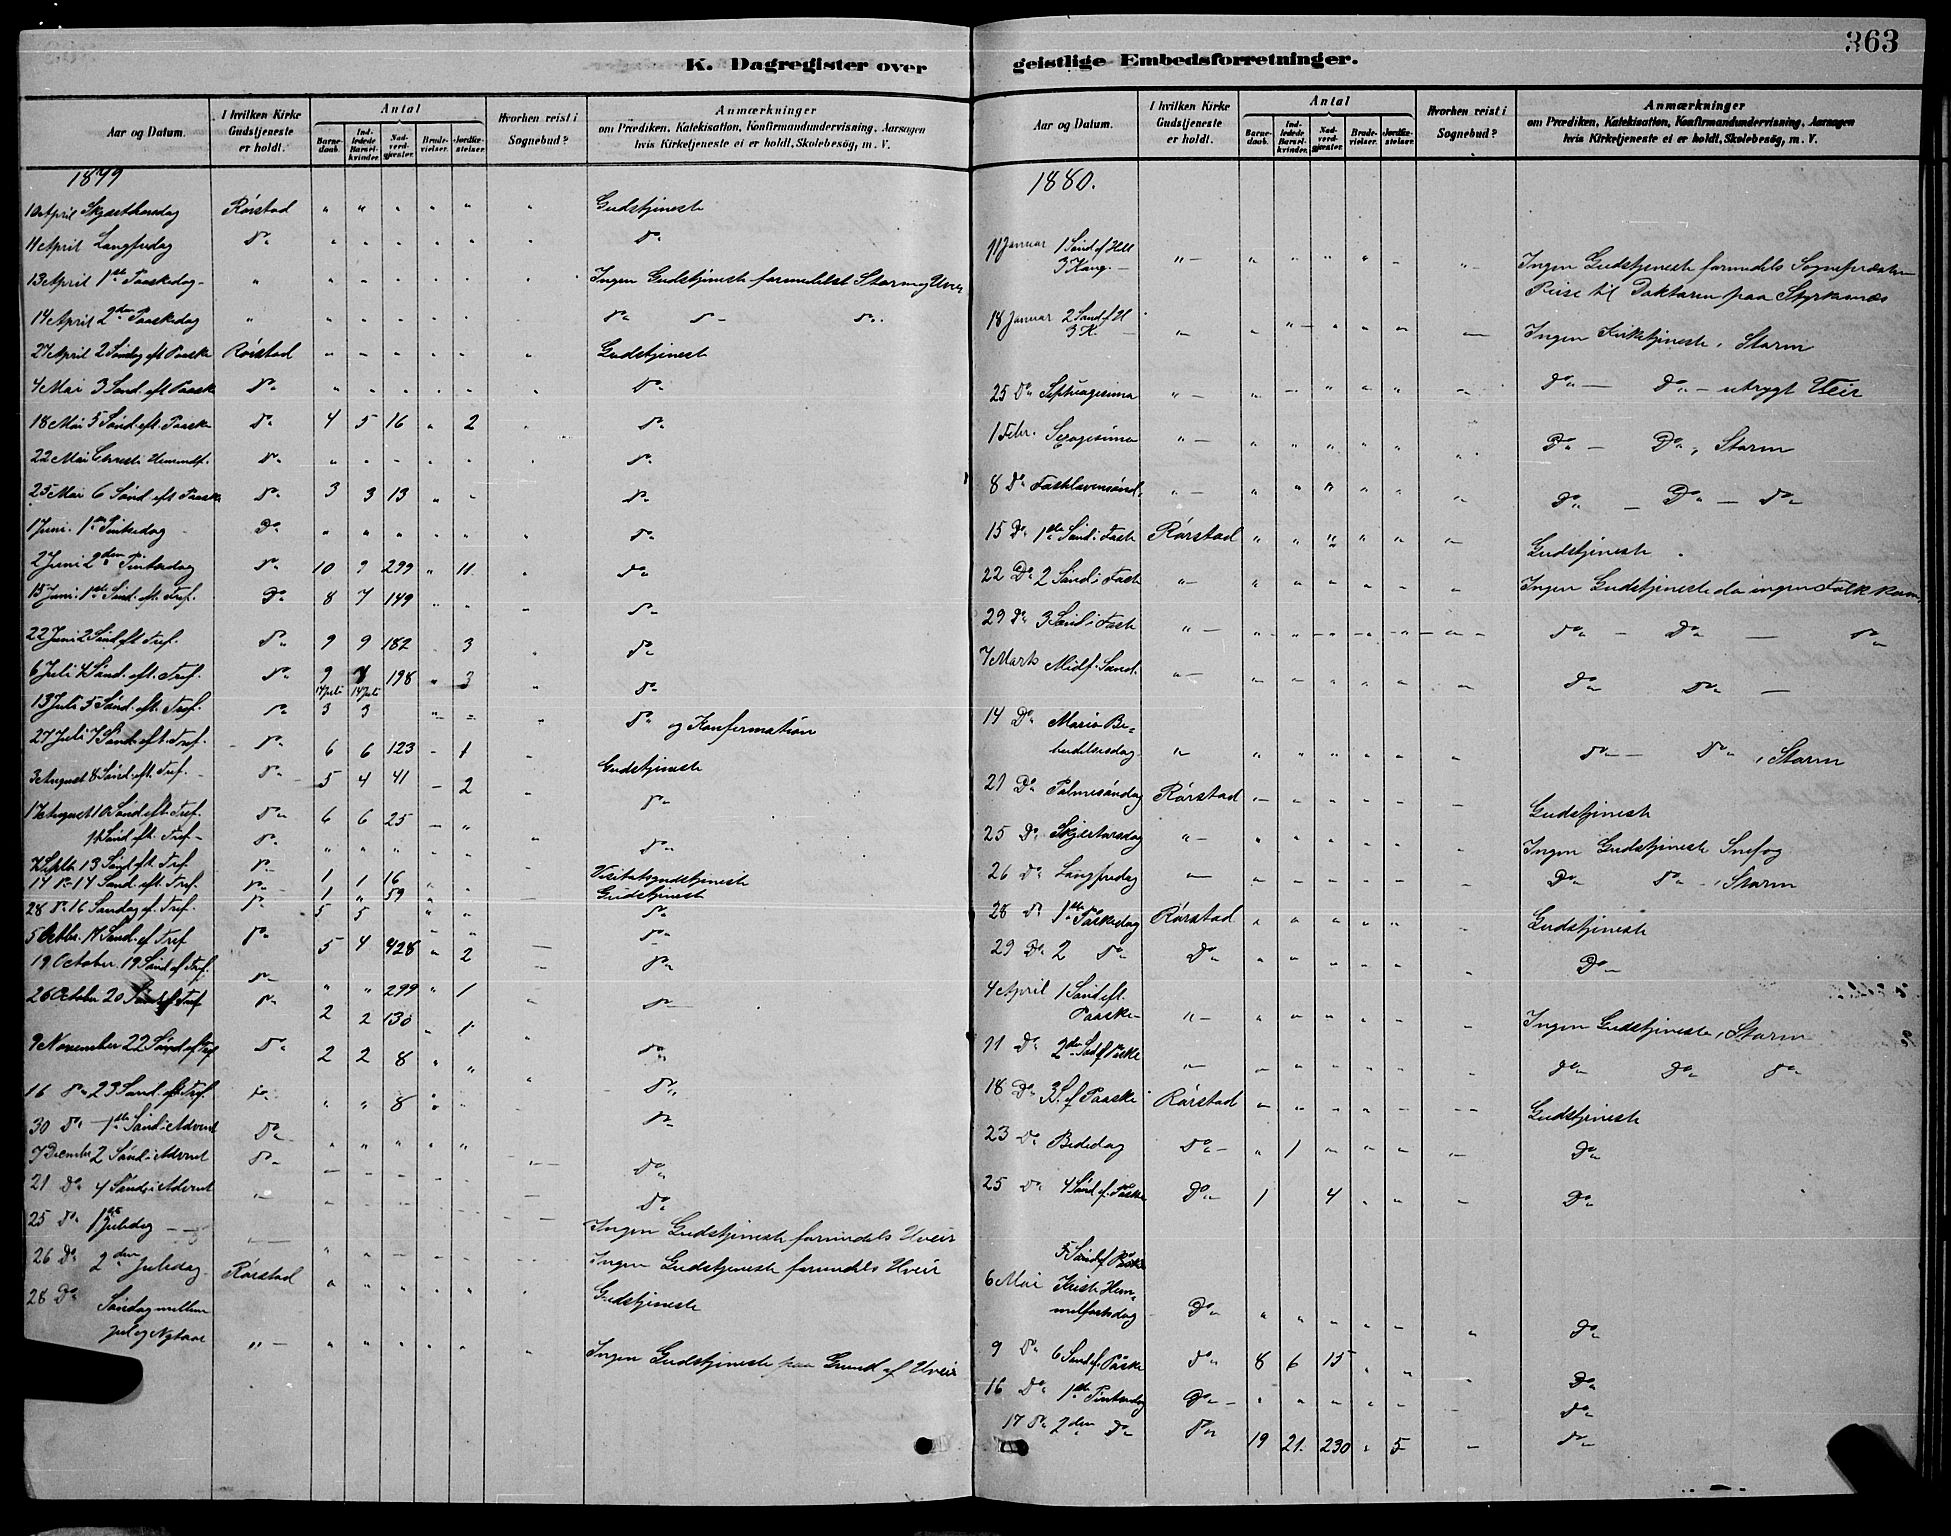 363
K. Dagregister over
Aar og Datum. I hvilken Kirke Gudstjeneste er holdt. Antal Barnedaab. Indledede Barselkvinder. Nadverdgjæster. Brudevielser. Jordfæstelser. Hvorhen reist i Sognebud? Anmærkninger om Prædiken, Katekisation, Konfirmandundervisning, Aarsagen hvis Kirketjeneste ei er holdt, Skolebesög, m. V.
1879
10 April Skjærthorsdag Rørstad " " " " " " Gudstjeneste
11 April Langfredag Do " " " " " " Do
13 April 1ste Paaskedag " " " " " " " Ingen Gudstjeneste formedelst Storm og Uveir
14 April 2den Paaskedag " " " " " " " Do Do Do
27 April 2 Søndag eft Paaske Rørstad " " " " " " Gudstjeneste
4 Mai 3 Sønd. eft Paaske Do " " " " " " Do
18 Mai 5 Sønd. eft. Paaske Do 4 5 16 " 2 " Do
22 Mai Christi Himmelf. Do " " " " " " Do
25 Mai 6 Sønd. eft Paaske Do 3 3 13 " " Do
1 Juni. 1ste Pintsedag Do " " " " " " Do
2 Juni 2den Pintsedag Do 10 9 299 " 11 " Do
15 Juni. 1ste Sønd. eft. Tref. Do 8 7 149 " " " Do
22 Juni 2 Sønd eft Tref. Do 9 9 182 3 " Do
6 Juli 4 Sønd. eft. Tref. Do 9 198 " 3 " Do
13 Juli 5 Sønd. eft. Tref. Do 14 Juli 3 14 Juli 3 " " " Do og Konfirmation
27 Juli 7 Sønd. eft. Tref. Do 6 6 123 - 1 " Gudstjeneste
3 August 8 Sønd. eft. Tref. Do 5 4 41 - 2 " Do
17 August 10 Sønd. eft. Tref. Do 6 6 25 - " " Do
Sønd. eft. Tref. Do " " " " "
7 Septb 13 Sønd. eft. Tref. Do 1 1 16 " " Visitatsgudstjeneste
14 Do 14 Sønd. eft. Tref. Do 1 " 59 " " - Gudstjeneste
28 Do 16 Søndag ef. Tref. Do 5 5 " " Do
5 Octbr. 17 Sønd. ef Tref Do 5 4 428 " 2 - Do
19 October. 19 Sønd ef Tref. Do " " 299 " 1 - Do
26 October 20 Sønd ef Tref Do 2 2 130 " 1 " Do
9 November 22 Sønd ef Tref Do 2 2 8 " " " Do
16 Do 23 Sønd. eft. Tref. Do " " 8 " " " Do
30 Do 1ste Sønd i Advent Do " " " " " Do
7 December 2 Sønd i Advent Do - - - - - - Do
21 Do 4 Sønd i Advent " - - - - - - Do
25 Do 1ste Juledag - " " - - - Ingen Gudstjeneste formedels Uveir
26 Do 2den Juledag - Ingen Gudstjeneste formedels Uveir
28 Do Rørstad " " " " " " Gudstjeneste
Søndag mellem
Jul og Nytaar " - " " " " " " Ingen Gudstjeneste paa Grund af Uveir
geistlige Embedsforretninger.
Aar og Datum. I hvilken Kirke Gudstjeneste er holdt. Antal Barnedaab. Indledede Barselkvinder. Nadverdgjæster. Brudevielser. Jordfæstelser. Hvorhen reist i Sognebud? Anmærkninger om Prædiken, Katekisation, Konfirmandundervisning, Aarsagen hvis Kirketjeneste ei er holdt, Skolebesög, m. V.
1880.
11 Januar 1 Sønd ef Hell
3 Kong. - " - " " " " - " Ingen Gudstjeneste formedels
Reise til Doktoren paa Styrkesnæs
18 Januar 2 Sønd ef H
3 K. - " " " " " " - Ingen Kirketjeneste, Storm
25 Do Septuagesima " - " - " " " - Do - Do - utrygt Veir
1 Febr. Sexagesima " - " " " " " " Do - Do, Storm
8 Do Fastelavnssønd. " - " " " " " " Do - Do - Do
15 Do 1ste Sønd i Fast Rørstad " " " " " " Gudstjeneste
22 Do 2 Sønd i Fast " - " " " " " " Ingen Gudstjeneste da ingen Folk kom.
29 Do 3 Sønd i Fast " - " - " - " - " - " - " - Do - Do - Do
7 Marts Midf. Sønd. " - " " " " " " Do Do -
14 Do Maria Be-
budelsesdag " " " " " " " Do - Do, Storm
21 Do Palmesøndag Rørstad " - " " " " - Gudstjeneste
25 Do Skjærtorsdag " - " " " " " - Ingen Gudstjeneste Snefog
26 Do Langfredag " " " " " " - Do Do - , Storm
28 Do 1ste Paaskedag Rørstad " " " " " " Gudstjeneste
29 Do 2 Do Do " " " " " " Do
4 April 1 Sønd eft.
Paaske - " - " " " " " " Ingen Gudstjeneste, Storm
11 Do 2den S. ef Paske " " " " " " " Do Do Do
18 Do 3 S. ef Paaske Rørstad " " " " " - - Gudstjeneste
23 Do Bededag Do - " 1 " " " " Do
25 Do 4 Sønd ef. Paske Do 1 4 " " - Do
5 Sønd ef Paske
6 Mai Kristi Him-
melfartsdag Do " " " " " " Do
9 Do 6 Sønd ef. Paske Do 8 6 15 " " " Do
16 Do 1ste Pintsedag Do - " " " " " - Do
17 Do 2den Do Do 19 21. 230 " 5 - Do